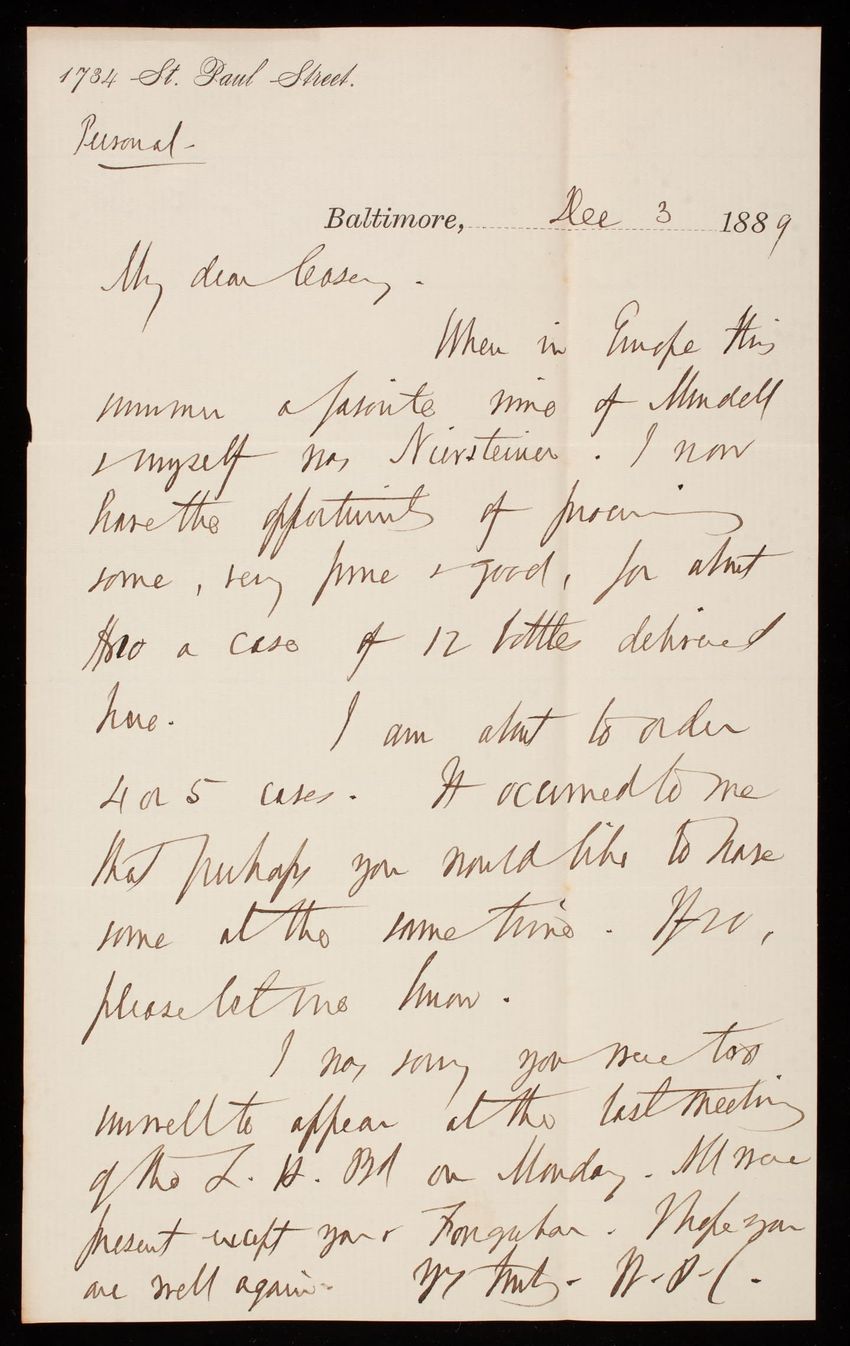 1734 St. Paul Street.
Personal -
Baltimore, Dec 3 1889
My dear Casey.
When in Europe this
summer a favorite wine of Mendell
& myself was Niersteiner. I now
have the opportunity of procuring
some, very fine & good, for about
$10 a case of 12 bottles delivered
here. I am about to order
4 or 5 cases. It occurred to me
that perhaps you would like to have
some at the same time. If so,
please let me know.
I was sorry you were too
unwell to appear at the last meeting
of the L. H. Bd on Monday. All were
present except you & Farquhar. I hope you
are well again - Yrs truly - W. P. C.